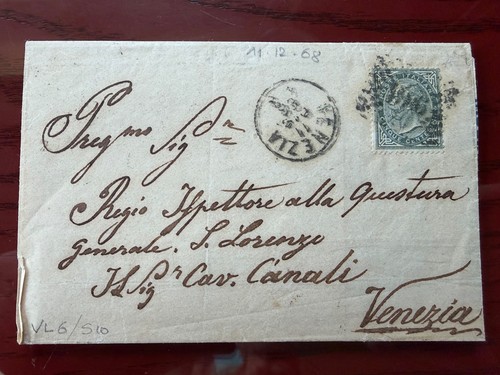 11-12-68
VENEZIA
Pregmo Sigr
Regio Ispettore alla Questura
Generale. S. Lorenzo
Il Sigr Cav. Canali
Venezia
VL6/S10